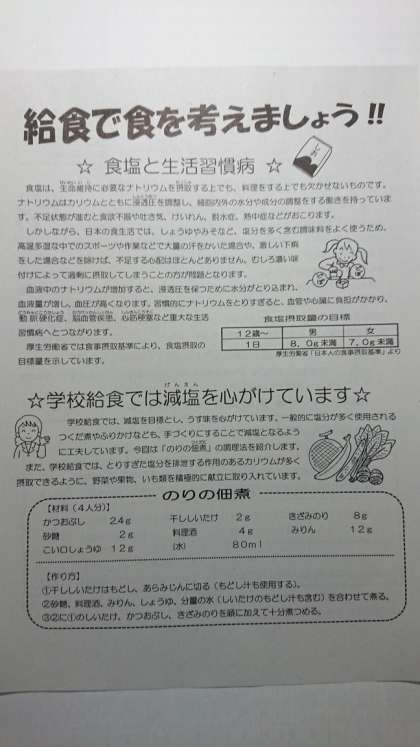 給食で食を考えましょう!!
☆ 食塩と生活習慣病 ☆
食塩は、生命維持に必要なナトリウムを摂取する上でも、料理をする上でも欠かせないものです。
ナトリウムはカリウムとともに浸透圧を調整し、細胞内外の水分や成分の調整をする働きを持っています。
す。不足状態が進むと食欲不振や吐き気、けいれん、脱水症、熱中症などがおこります。
しかしながら、日本の食生活では、しょうゆやみそなど、塩分を多く含む調味料をよく使うため、
高温多湿な中でのスポーツや作業などで大量の汗をかいた場合や、激しい下痢
をした場合などを除けば、不足する心配はほとんどありません。むしろ濃い味
付けによって過剰に摂取してしまうことの方が問題となります。
血液中のナトリウムが増加すると、浸透圧を保つために水分がとり込まれ、
血液量が増し、血圧が高くなります。習慣的にナトリウムをとりすぎると、血管や心臓に負担がかかり、
動脈硬化症、脳血管疾患、心筋梗塞など重大な生活
習慣病へとつながります。
厚生労働省では食事摂取基準により、食塩摂取の
目標量を示しています。
食塩摂取量の目標
12歳〜 男 女
1日 8.0g未満 7.0g未満
厚生労働省「日本人の食事摂取基準」より
げんえん
☆学校給食では減塩を心がけています☆
学校給食では、減塩を目標とし、うす味を心がけています。一般的に塩分が多く使用される
つくだ煮やふりかけなども、手づくりにすることで減塩となるよう
に工夫しています。今回は「のりの佃煮」の調理法を紹介します。
また、学校給食では、とりすぎた塩分を排泄する作用のあるカリウムが多く
摂取できるように、野菜や果物、いも類を積極的に献立に取り入れています。
のりの佃煮
【材料(4人分)】
かつおぶし 2.4g 干ししいたけ 2g きざみのり 8g
砂糖 2g 料理酒 4g みりん 12g
こい口しょうゆ 12g (水) 80ml
【作り方】
①干ししいたけはもどし、あらみじんに切る(もどし汁も使用する)。
②砂糖、料理酒、みりん、しょうゆ、分量の水(しいたけのもどし汁も含む)を合わせて煮る。
③②に①のしいたけ、かつおぶし、きざみのりを順に加えて十分煮つめる。